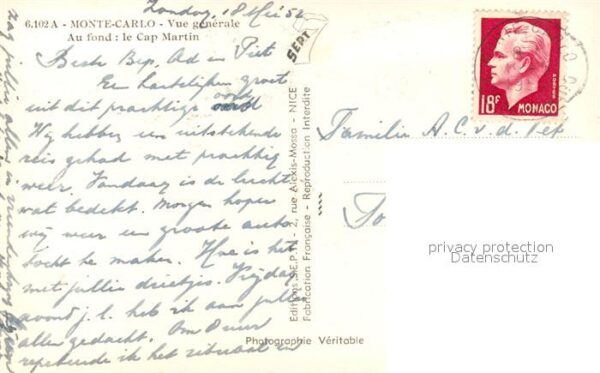 Zondag, 18 Mei 52
6.102A - MONTE-CARLO - Vue générale
Au fond : le Cap Martin
Beste Bep, Ad en Piet
Een hartelijken groet
uit dit prachtige oord
Wij hebben een uitstekende
reis gehad met prachtig
weer. Vandaag is de lucht
wat bedekt. Morgen hopen
wij weer een groote auto
tocht te maken. Hoe is het
met jullie drietjes. Vrijdag
avond j.l. heb ik aan jullie
allen gedacht. Om 8 uur
ik het
SEPT
Editions S.E.P.T. - 2, rue Alexis-Mossa - NICE
Fabrication Française - Reproduction Interdite
Photographie Véritable
18F
MONACO
Familie A. C. v. d.
To
privacy protection
Datenschutz